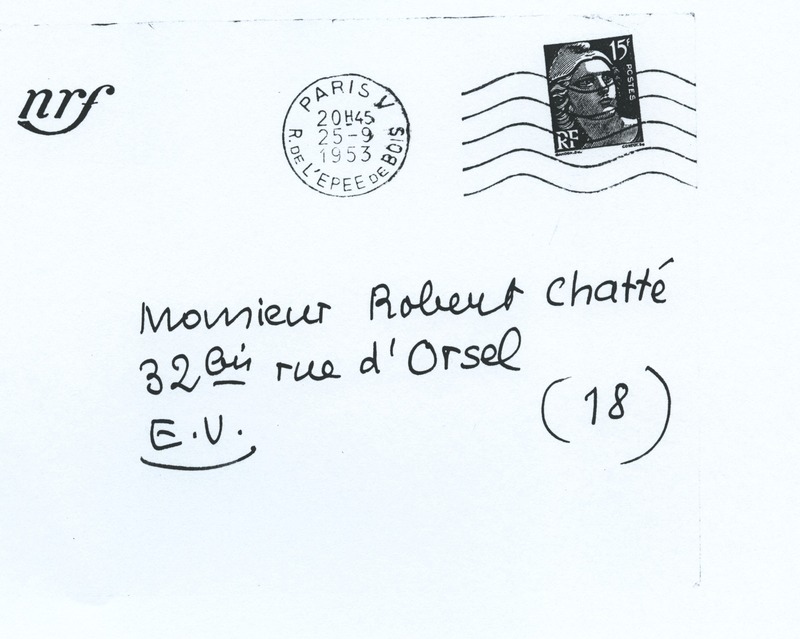 nrf
PARIS V
20H45
25-9
1953
R. DE L'EPEE DE BOIS
15F
POSTES
RF
Monsieur Robert Chatté
32 bis rue d'Orsel
E.V.
(18)